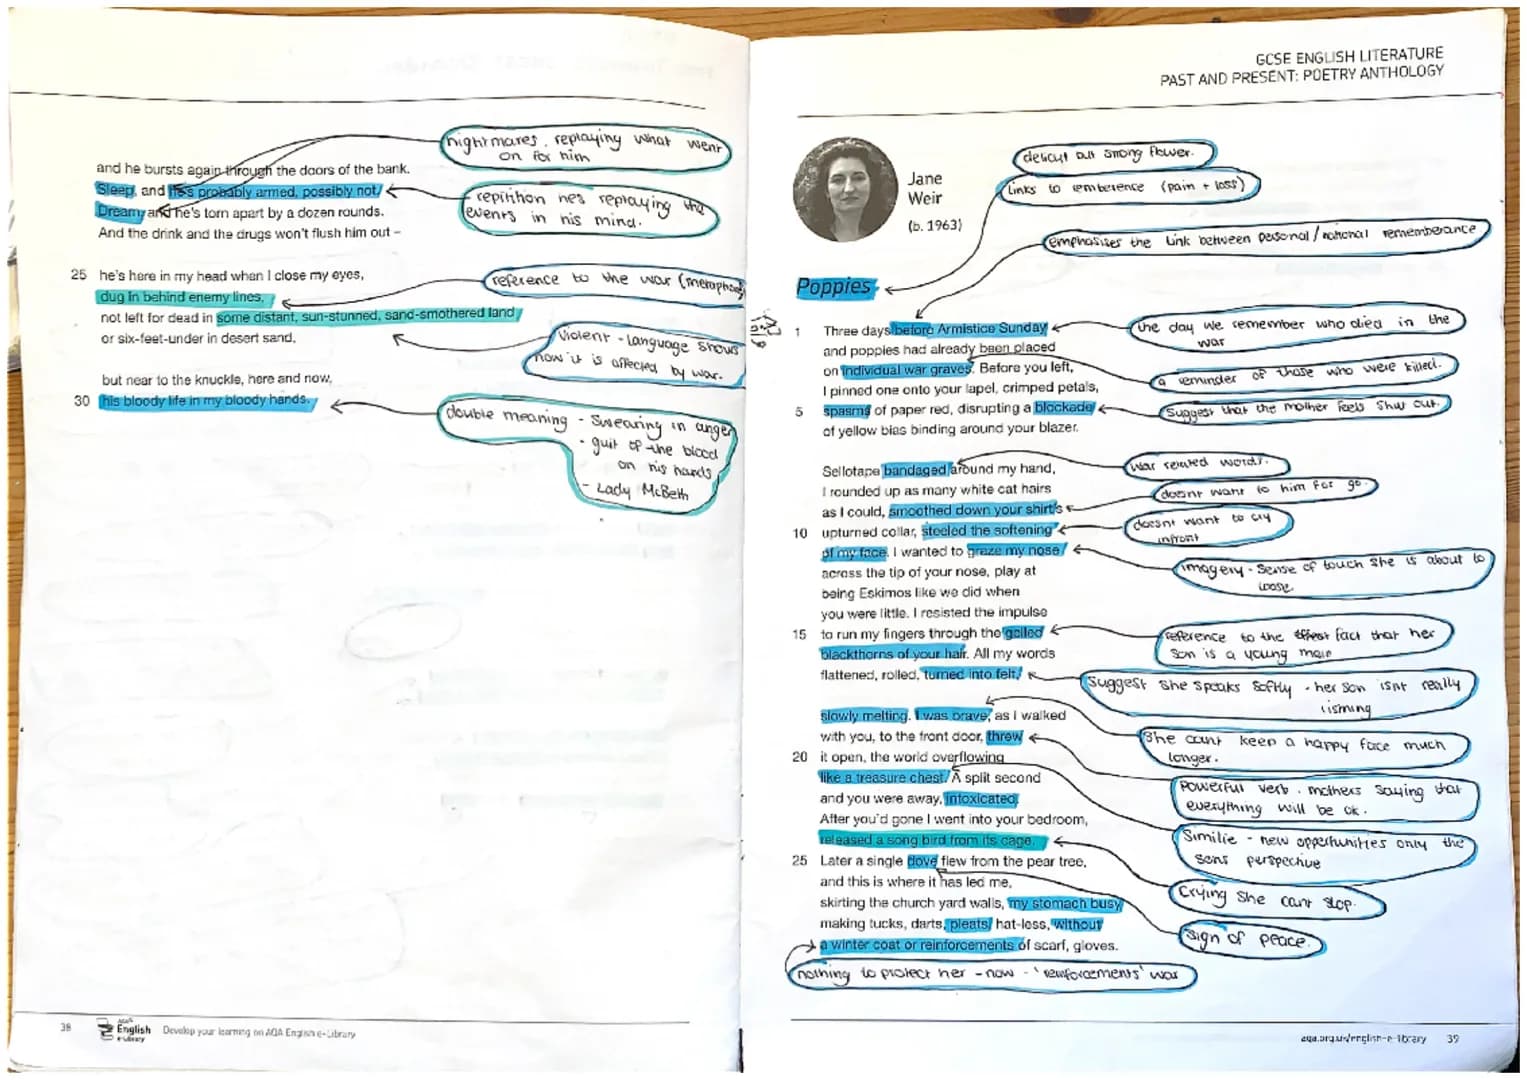 and he bursts again through the doors of the bank.
Sleep, and he's probably armed, possibly not.
Dream, and he's torn apart by a dozen rounds.
And the drink and the drugs won't flush him out –
25 he's here in my head when I close my eyes,
dug in behind enemy lines,
not left for dead in some distant, sun-stunned, sand-smothered land
or six-feet-under in desert sand,
but near to the knuckle, here and now,
30 his bloody life in my bloody hands.
nightmares, replaying what went
on for him
repitition he's replaying the
events in his mind.
reference to the war (metaphor)
Violent - language shows
how it is affected by war.
double meaning - Swearing in anger
- guilt of the blood
on his hands
- Lady McBeth
38
AQA
English
e-Library
Develop your learning on AQA English e-Library
GCSE ENGLISH LITERATURE
PAST AND PRESENT: POETRY ANTHOLOGY
Jane
Weir
(b. 1963)
delicat but strong flower.
links to remberence (pain + loss)
emphasises the link between personal/national rememberance
Poppies
1 Three days before Armistice Sunday
and poppies had already been placed
on individual war graves. Before you left,
I pinned one onto your lapel, crimped petals,
5 spasms of paper red, disrupting a blockade
of yellow bias binding around your blazer.
Sellotape bandaged around my hand,
I rounded up as many white cat hairs
as I could, smoothed down your shirt's
10 upturned collar, steeled the softening
of my face. I wanted to graze my nose
across the tip of your nose, play at
being Eskimos like we did when
you were little. I resisted the impulse
15 to run my fingers through the gelled
blackthorns of your hair. All my words
flattened, rolled, turned into felt,
slowly melting. I was brave, as I walked
with you, to the front door, threw
20 it open, the world overflowing
like a treasure chest. A split second
and you were away, intoxicated.
After you'd gone I went into your bedroom,
released a song bird from its cage.
25 Later a single dove flew from the pear tree,
and this is where it has led me,
skirting the church yard walls, my stomach busy
making tucks, darts, pleats, hat-less, without
a winter coat or reinforcements of scarf, gloves.
the day we remember who died in the
war
a reminder of those who were killed.
Suggest that the mother feels shut out.
war related words.
doesnt want to him for go.
doesnt want to cry
infront
imagery - Sense of touch she is about to
loose.
reference to the fact that her
son is a young man
Suggest she speaks softly - her son isnt really
lisming
She cant keep a happy face much
longer.
Powerful verb. mothers saying that
everything will be ok.
Similie - new opportunities only the
sons perspective
Crying she cant stop.
Sign of peace.
nothing to protect her - now - 'reinforcements' war
aqa.org.uk/english-e-library 39